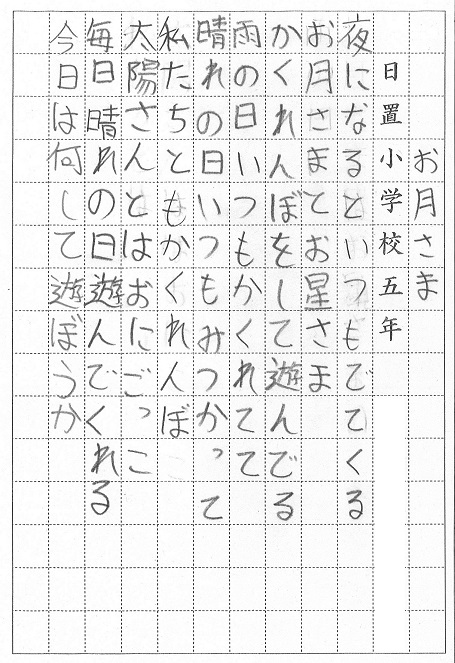 お月さま
日置小学校五年
夜になるといつもでてくる
お月さまとお星さま
かくれんぼをして遊んでる
雨の日いつもかくれてて
晴れの日いつもみつかって
私たちともかくれんぼ
太陽さんとはおにごっこ
毎日晴れの日遊んでくれる
今日は何して遊ぼうか